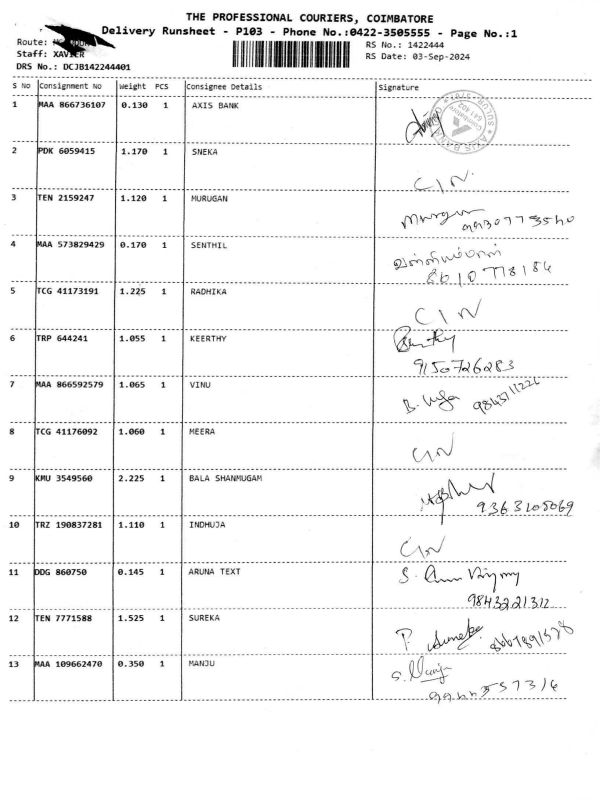 THE PROFESSIONAL COURIERS, COIMBATORE
Delivery Runsheet - P103 - Phone No.:0422-3505555 - Page No.:1
Route:
RS No.: 1422444
Staff: XAVIER
RS Date: 03-Sep-2024
DRS No.: DCJB142244401
S No Consignment No Weight PCS Consignee Details Signature
1 MAA 866736107 0.130 1 AXIS BANK
AXIS BANK
SULUR
641 402
Coimbatore
2 PDK 6059415 1.170 1 SNEKA
CIN
3 TEN 2159247 1.120 1 MURUGAN
Murugan
4 MAA 573829429 0.170 1 SENTHIL
5 TCG 41173191 1.225 1 RADHIKA
CIN
6 TRP 644241 1.055 1 KEERTHY
9150726283
7 MAA 866592579 1.065 1 VINU
9843711226
8 TCG 41176092 1.060 1 MEERA
CIN
9 KMU 3549560 2.225 1 BALA SHANMUGAM
9363108069
10 TRZ 190837281 1.110 1 INDHUJA
CIN
11 DDG 860750 0.145 1 ARUNA TEXT
9843221312
12 TEN 7771588 1.525 1 SUREKA
P. Sureka
13 MAA 109662470 0.350 1 MANJU
S. Manju